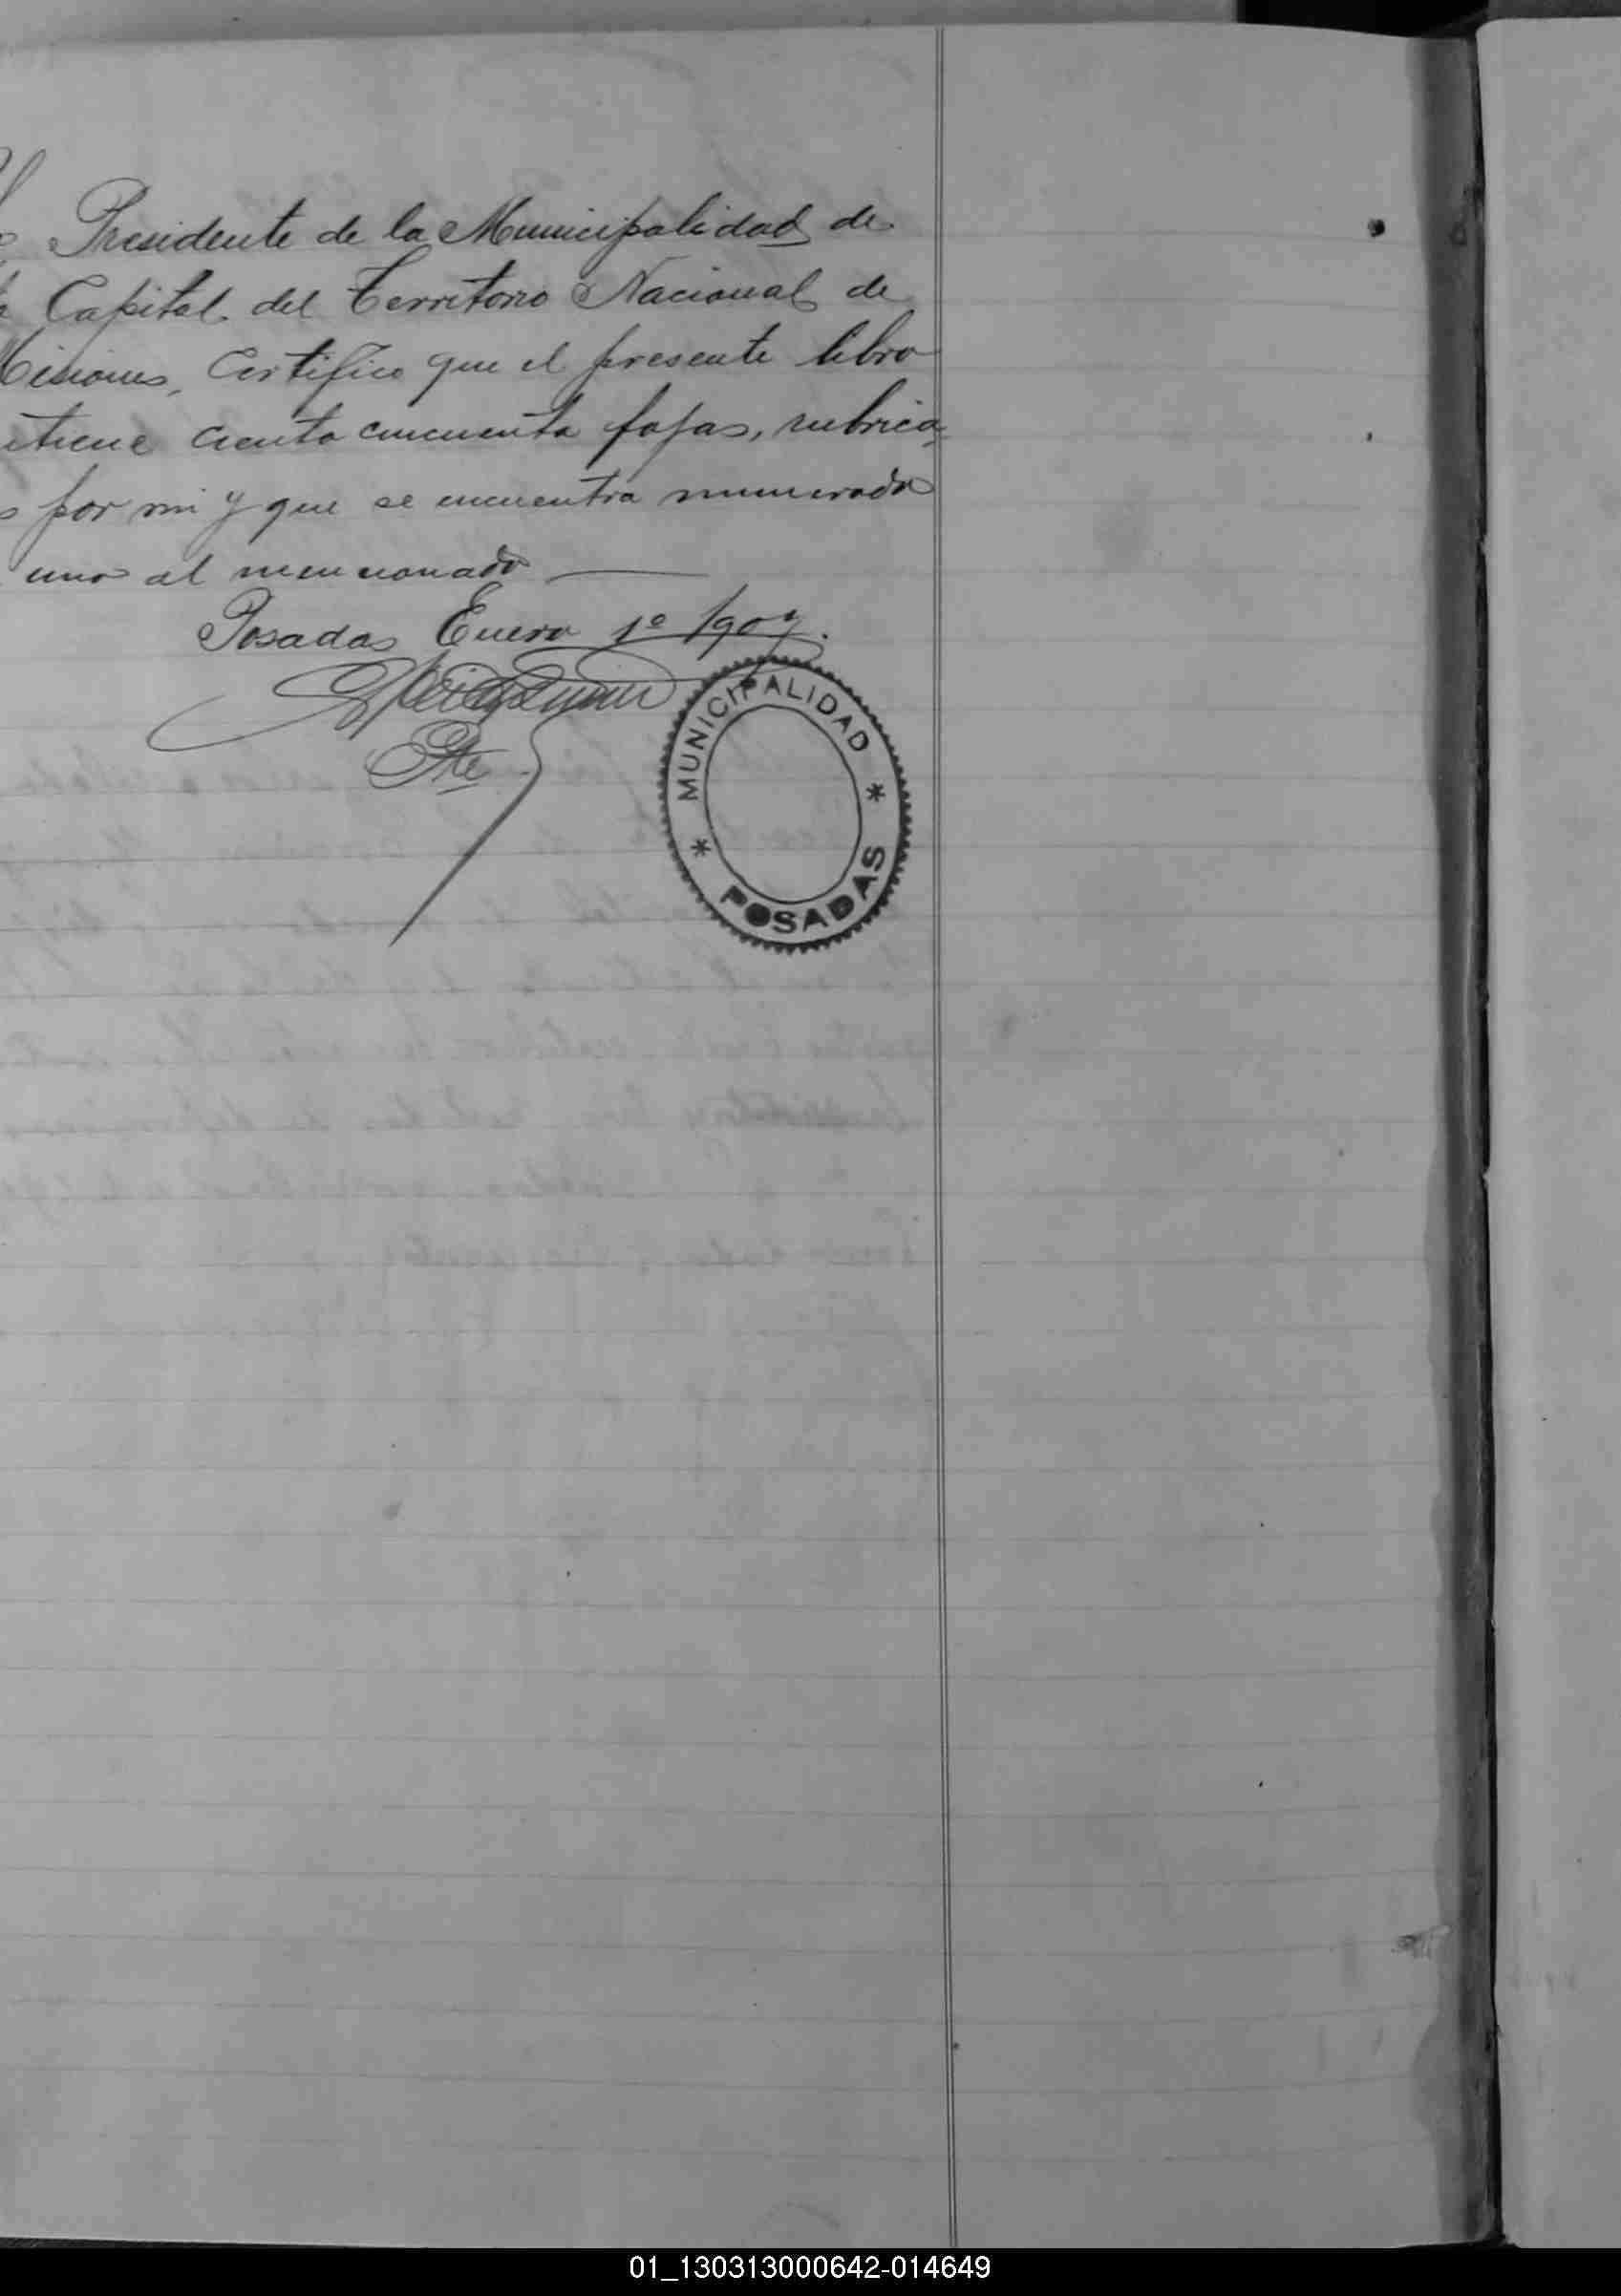 Presidente de la Municipalidad de
Capital del Territorio Nacional de
isiones, Certifico que el presente libro
tiene ciento cincuenta fojas, rubrica
s por mi y que se encuentra numerado
uno al mencionado
Posadas Enero 1º 1907.
Pte
MUNICIPALIDAD
* *
POSADAS
01_130313000642-014649